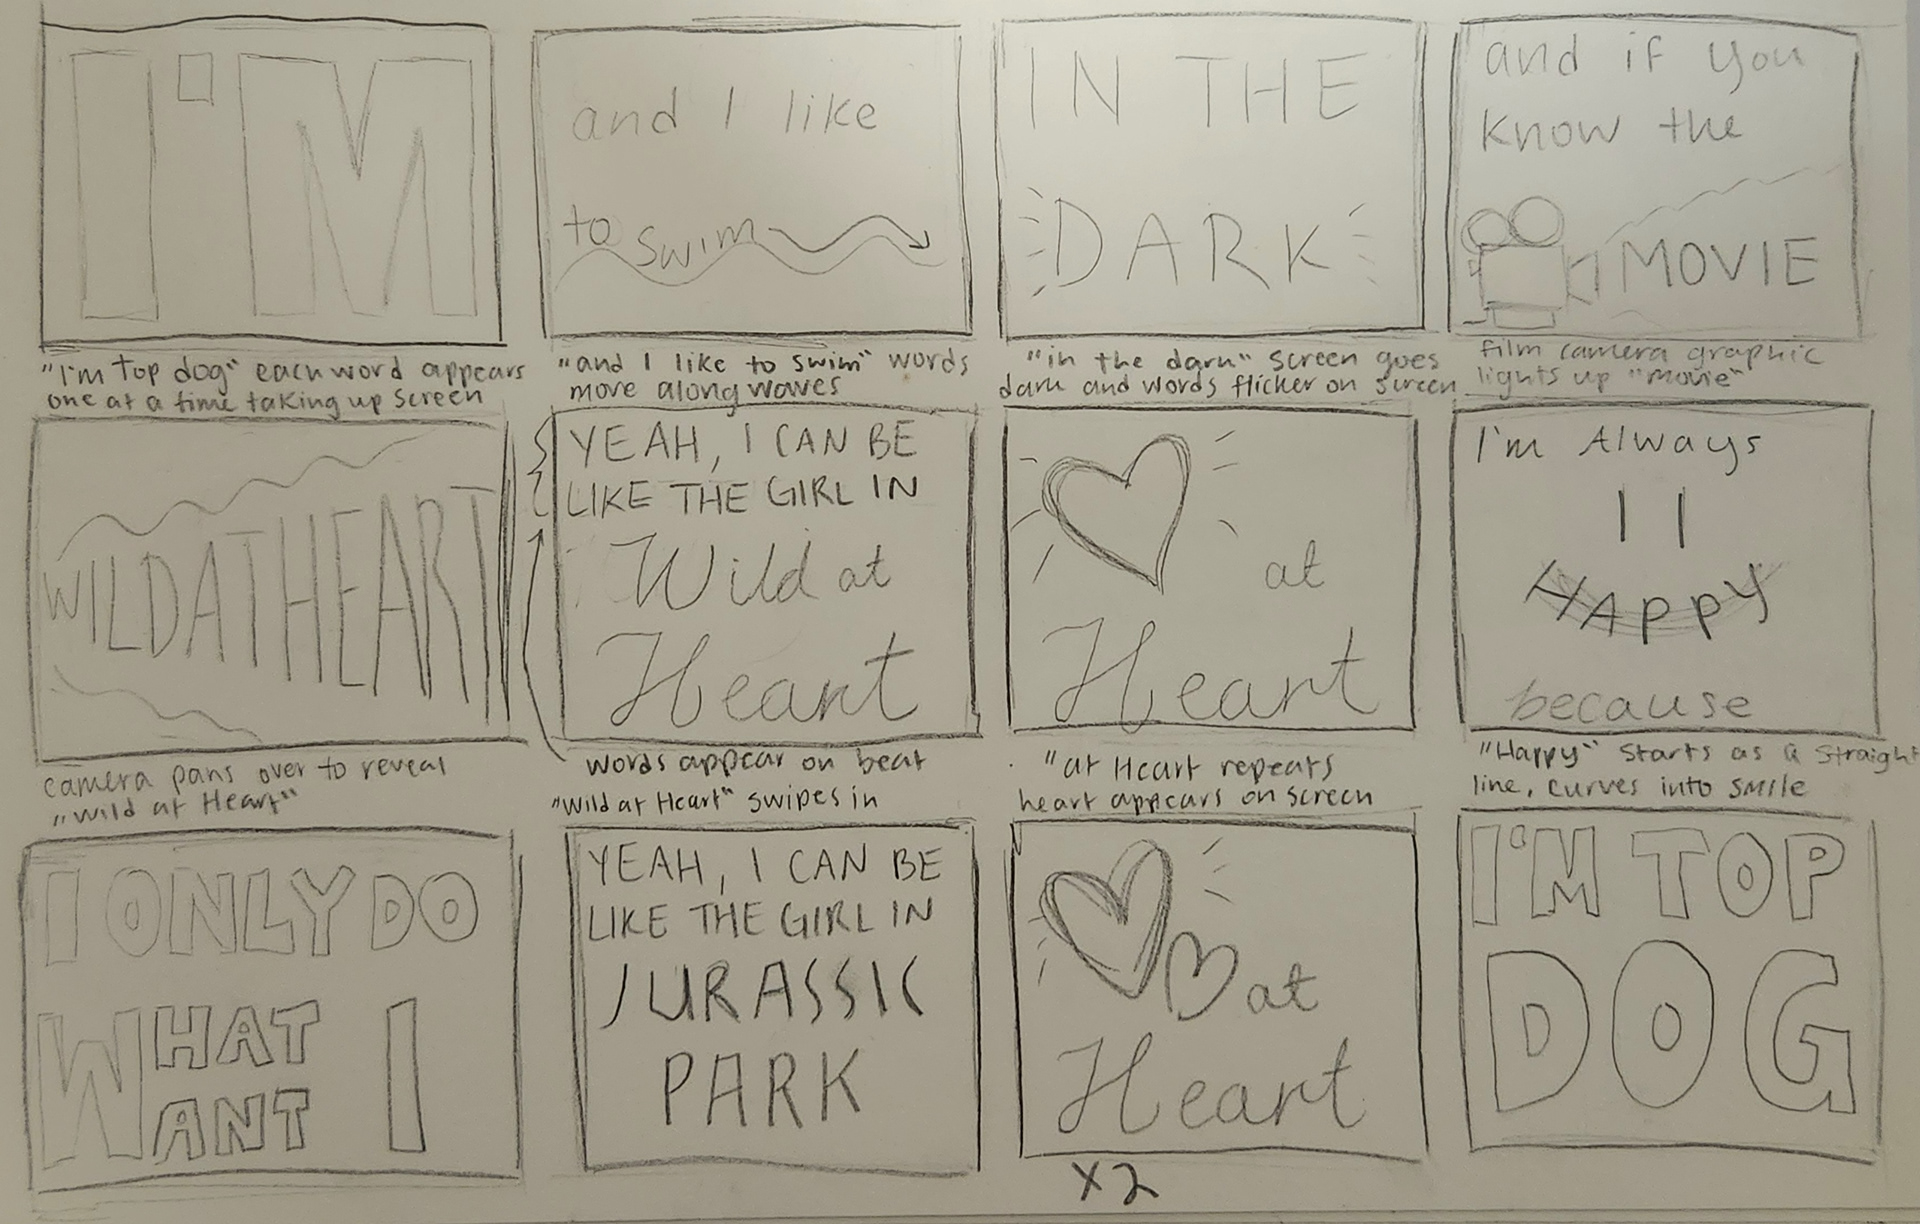 I'M
"I'm top dog" each word appears
one at a time taking up screen
and I like
to swim
"and I like to swim" words
move along waves
IN THE
DARK
"in the dark" screen goes
dark and words flicker on screen
and if you
know the
MOVIE
film camera graphic
lights up "movie"
WILDATHEART
camera pans over to reveal
"wild at Heart"
YEAH, I CAN BE
LIKE THE GIRL IN
Wild at
Heart
words appear on beat
"Wild at Heart" swipes in
at
Heart
"at Heart repeats
heart appears on screen
I'm Always
HAPPY
because
"Happy" starts as a straight
line, curves into smile
I ONLY DO
WHAT I
WANT
YEAH, I CAN BE
LIKE THE GIRL IN
JURASSIC
PARK
at
Heart
x2
I'M TOP
DOG